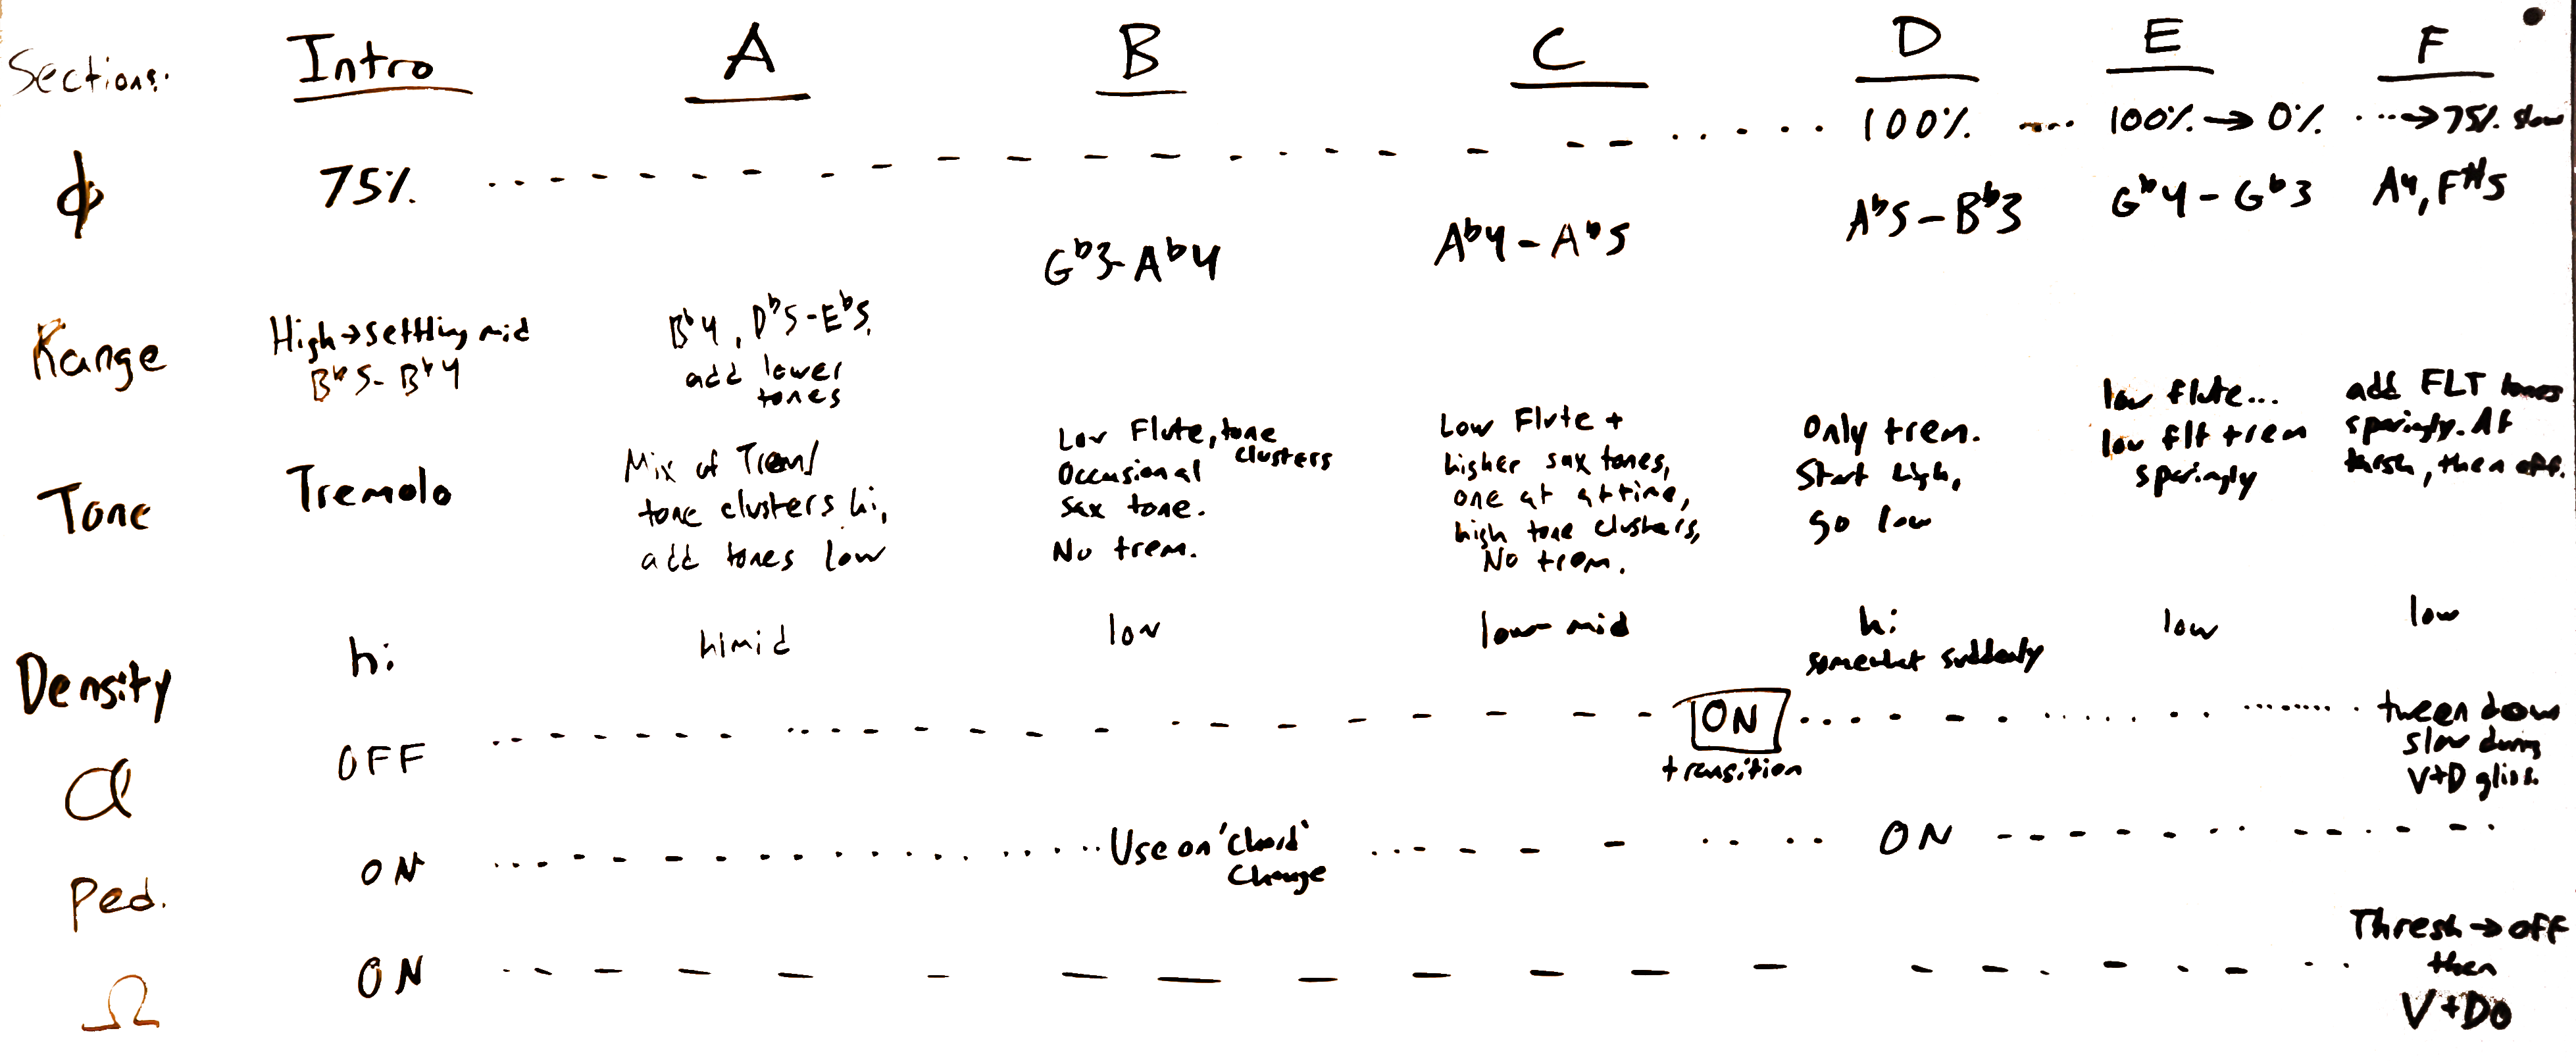 Sections: Intro A B C D E F
ϕ 75% 100% 100% → 0% → 75% slow
Range High → settling mid B♭5 - B♭4
B♭4, D♭5 - E♭5, add lower tones
G♭3 - A♭4
A♭4 - A♭5
A♭5 - B♭3
G♭4 - G♭3
A4, F#5
Tone Tremolo
Mix of Trem/
tone clusters hi,
add tones low
Low Flute, tone clusters
Occasional
sax tone.
No trem.
Low Flute +
higher sax tones,
one at a time,
high tone clusters,
No trem.
Only trem.
Start high,
go low
low flute...
low flt trem
sparingly
add FLT tones
sparingly. At
thrsh, then off.
Density hi himid low low-mid hi
somewhat suddenly
low low
α OFF ON
transition
tween down
slow during
V+D gliss.
Ped. ON Use on 'Chord'
Change
ON
Ω ON Thresh → off
then
V+D0